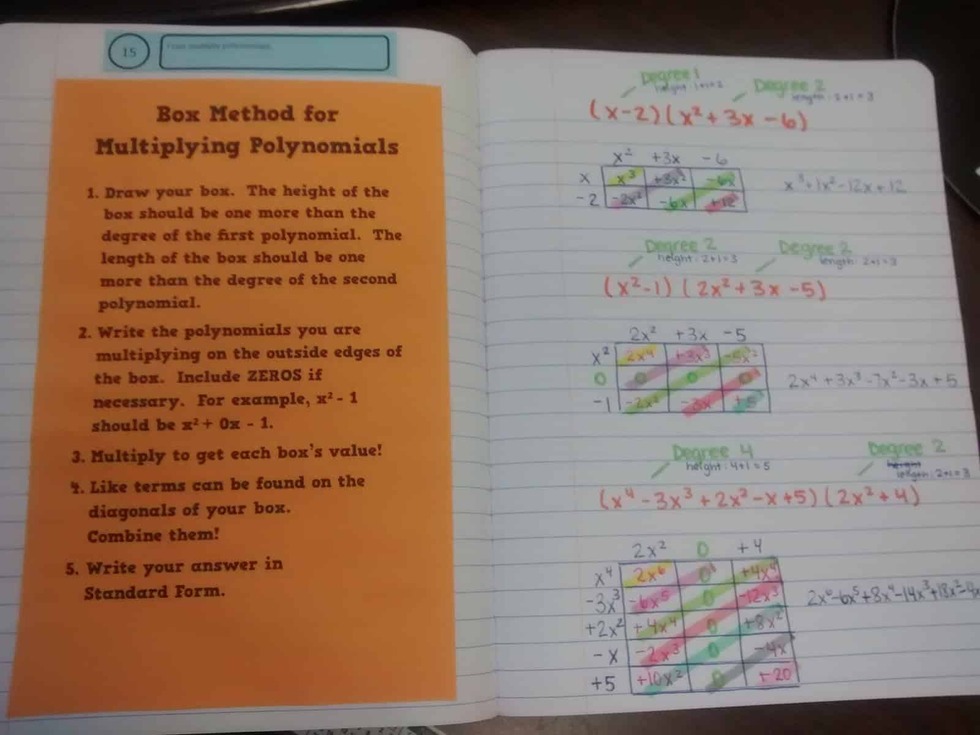 15
I can multiply polynomials.
Box Method for
Multiplying Polynomials
1. Draw your box. The height of the
box should be one more than the
degree of the first polynomial. The
length of the box should be one
more than the degree of the second
polynomial.
2. Write the polynomials you are
multiplying on the outside edges of
the box. Include ZEROS if
necessary. For example, x² - 1
should be x² + 0x - 1.
3. Multiply to get each box's value!
4. Like terms can be found on the
diagonals of your box.
Combine them!
5. Write your answer in
Standard Form.
Degree 1
height: 1+1=2
Degree 2
length: 2+1=3
(x-2)(x²+3x-6)
x² +3x -6
x x³ +3x² -6x
-2 -2x² -6x +12
x³+1x²-12x+12
Degree 2
height: 2+1=3
Degree 2
length: 2+1=3
(x²-1)(2x²+3x-5)
2x² +3x -5
x² 2x⁴ +3x³ -5x²
0 0 0 0
-1 -2x² -3x +5
2x⁴+3x³-7x²-3x+5
Degree 4
height: 4+1=5
Degree 2
length: 2+1=3
(x⁴-3x³+2x²-x+5)(2x²+4)
2x² 0 +4
x⁴ 2x⁶ 0 +4x⁴
-3x³ -6x⁵ 0 -12x³
+2x² +4x⁴ 0 +8x²
-x -2x³ 0 -4x
+5 +10x² 0 +20
2x⁶-6x⁵+8x⁴-14x³+18x²-4x